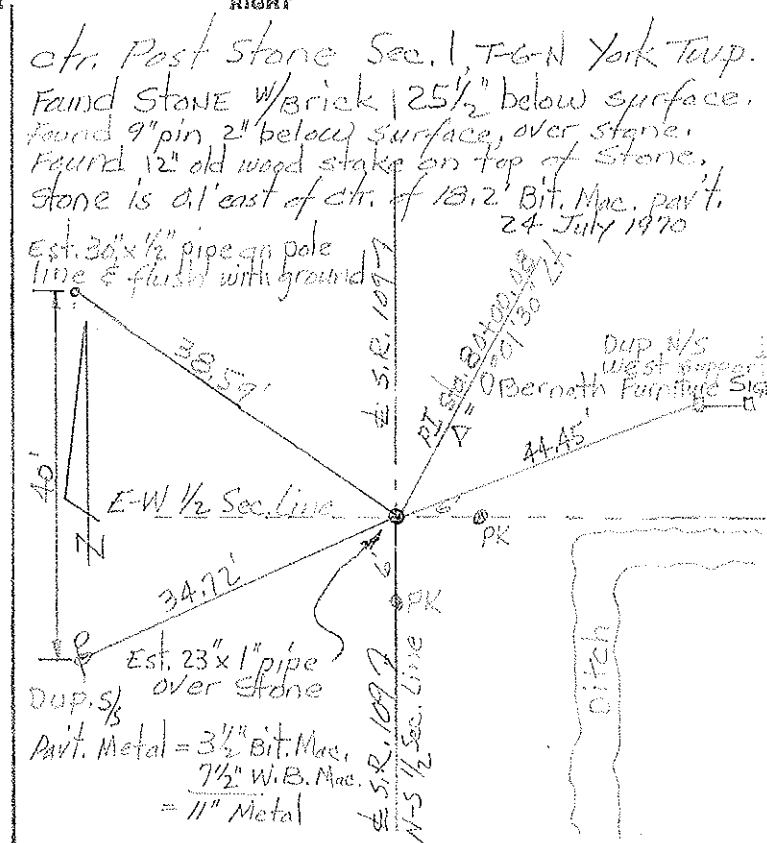 RIGHT
Ctr. Post Stone Sec. 1, T-6-N York Twp.
Found STONE W/Brick 25½" below surface.
Found 9" pin 2" below surface, over stone.
Found 12" old wood stake on top of Stone.
Stone is 0.1' east of ctr. of 18.2' Bit. Mac. pav't.
24 July 1970
Est. 30" x ½" pipe on pole
line & flush with ground
38.59'
℄ S.R. 109
PI Sta. 80+00.08
Δ = 0°01'30" Lt.
Dup. N/S
West support
Bernath Furniture Sign
44.45'
40'
E-W ½ Sec. Line
6'
PK
N
34.72'
6'
PK
Est. 23" x 1" pipe
over Stone
Dup. S/S
℄ S.R. 109
N-S ½ Sec. Line
Ditch
Pav't. Metal = 3½" Bit. Mac.
7½" W.B. Mac.
= 11" Metal